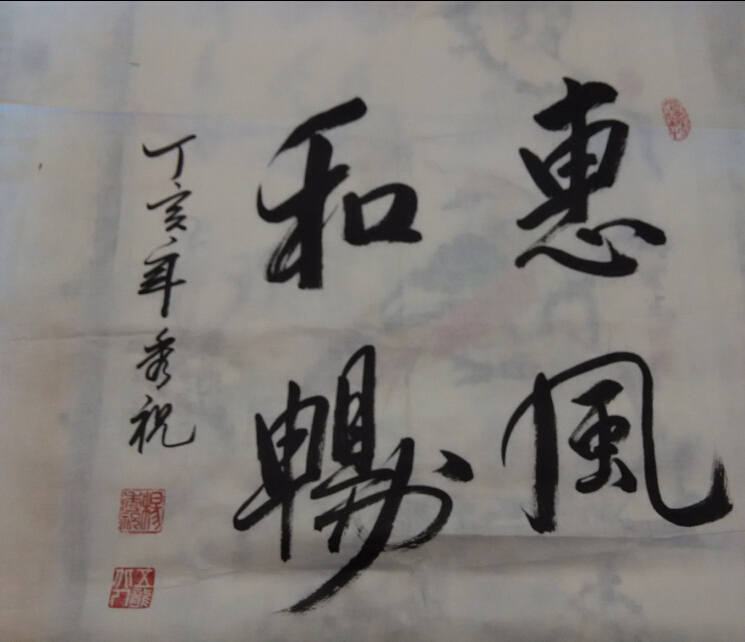 惠風
和暢
丁亥年秀祝